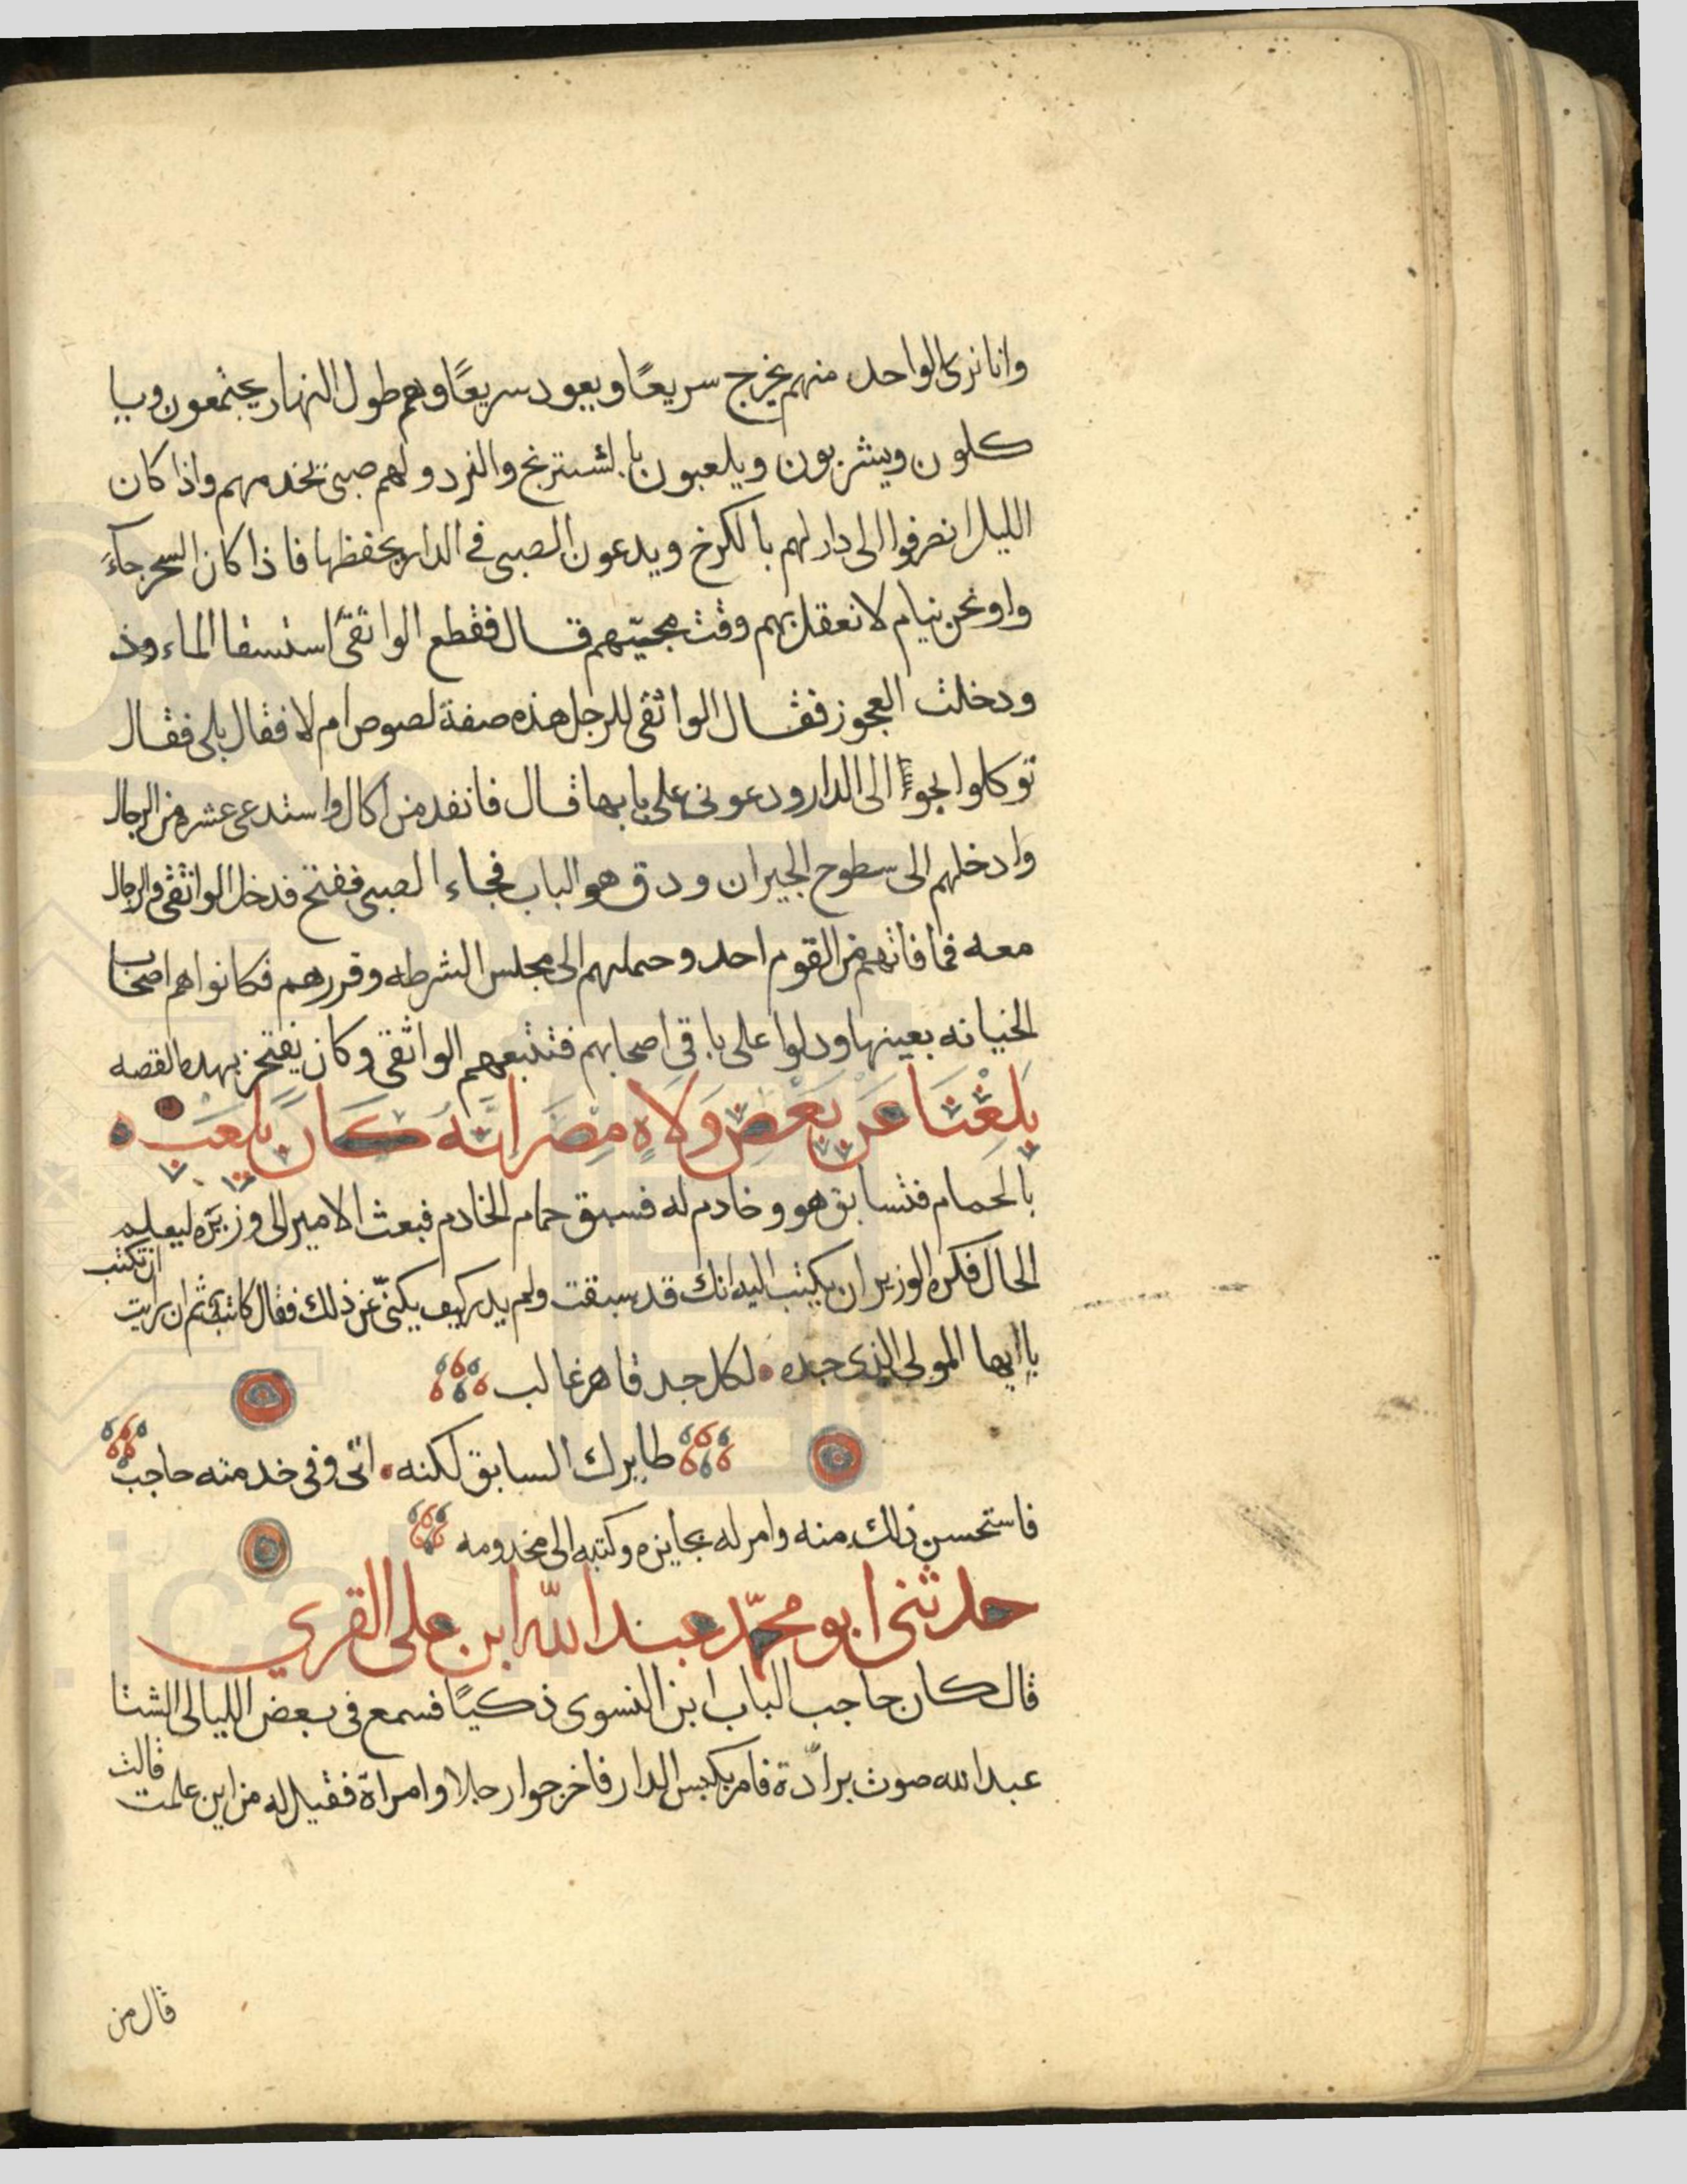 وانا نرى الواحد منهم يخرج سريعًا ويعود سريعًا وهم طول النهار يجتمعون ويا
كلون ويشربون ويلعبون بالشترنج والنرد ولهم صبى يخدمهم واذا كان
الليل انصرفوا الى دار لهم بالكرخ ويدعون الصبى فى الدار يحفظها فاذا كان السحر جاءَ
وا ونحن نيام لا نعقل بهم وقت مجيئهم قال فقطع الواثقى استسقا الماء وذ
ودخلت العجوز فقال الواثقى للرجل هذه صفة لصوص ام لا فقال بلى فقال
توكلوا بحوا الى الدار ودعونى على بابها قال فانفد من اكال واستدعى عشره من الرجال
وادخلهم الى سطوح الجيران ودق هو الباب فجاء الصبى ففتح فدخل الواثقى والرجال
معه فما فاتهم من القوم احد وحملهم الى مجلس الشرطه وقررهم فكانوا هم اصحاب
الخيانه بعينها ودلوا على باقى اصحابهم فتتبعهم الواثقى وكان يفتخر بهده القصه
بَلغَنَا عَن بَعض وَلاه مِصَر انَه كَان يَلعَب
بالحمام فتسابق هو وخادم له فسبق حمام الخادم فبعث الامير الى وزيره ليعلم
الحال فكره الوزير ان يكتب اليه انك قد سبقت ولم يدر كيف يكنّى عن ذلك فقال كاتبه ثم ان رايت ان تكتب
يا ايها المولى الذى جده لكل جد قاهر غالب
طايرك السابق لكنه اتى وفى خدمته حاجب
فاستحسن ذلك منه وامر له بجايزه وكتبه الى مخدومه
حدثنى ابو محمّد عبد اللّه ابن على القرى
قال كان حاجب الباب ابن النسوى ذكيًا فسمع فى بعض الليالى الشتا
عبد الله صوت برادة فامر بكبس الدار فاخرجوا رجلا وامراة فقيل له من اين علمت قالت
قال من